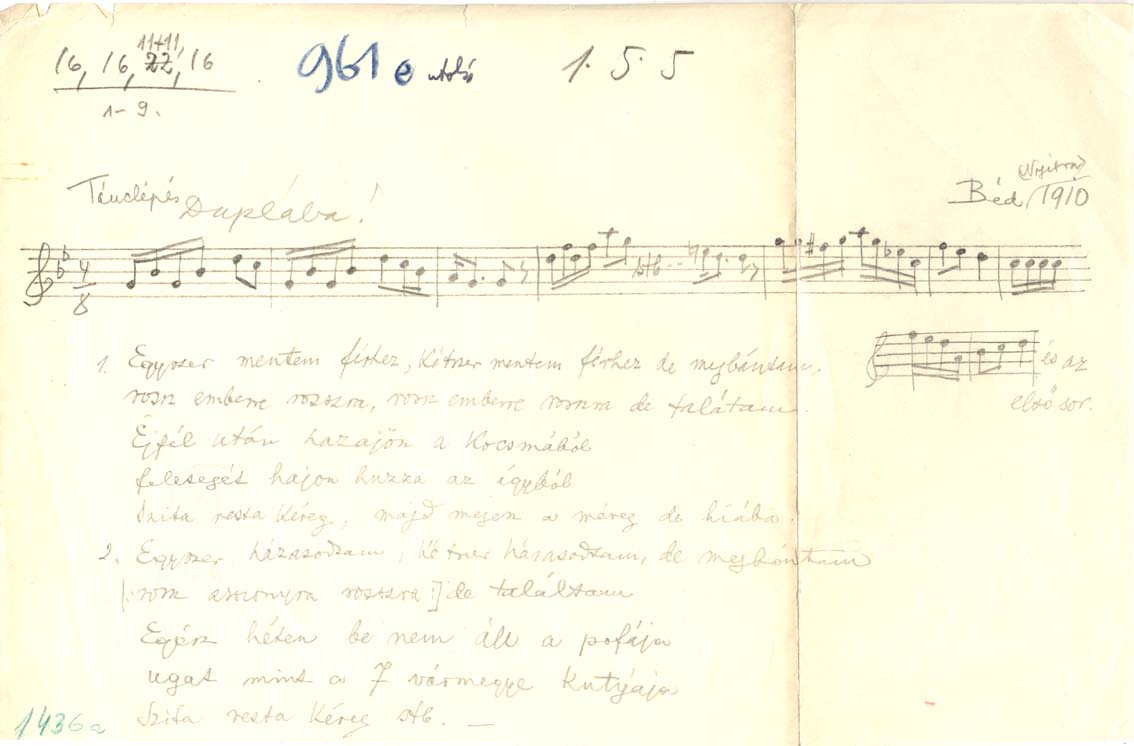 11+11,
16, 16, 22, 16
1-9.
961 e utolsó
1. 5. 5
Tánclépés Duplába!
(Nyitra)
Béd, 1910
4
8
stb
1. Egyszer mentem férhez, Kétszer mentem férhez de megbántam,
rossz emberre rosszra, rossz emberre rosszra de talátam.
és az
első sor.
Éjfél után hazajön a Kocsmából
feleségét hajon huzza az ágyból
Szita resta Kéreg, majd mejen a méreg de hiába.
2. Egyszer házasodtam, Kétszer házasodtam, de megbántam
[: rossz asszonyra rosszra :] de találtam
Egész héten be nem áll a pofája
ugat mint a 7 vármegye Kutyája
Szita resta Kéreg stb. —
1436a